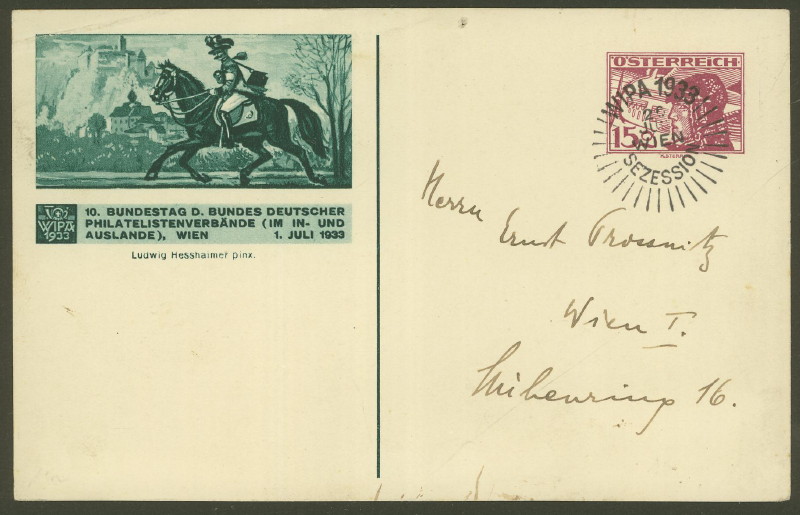 WIPA
1933
10. BUNDESTAG D. BUNDES DEUTSCHER
PHILATELISTENVERBÄNDE (IM IN- UND
AUSLANDE), WIEN 1. JULI 1933
Ludwig Hesshaimer pinx.
ÖSTERREICH
15
WIPA 1933
WIEN
SEZESSION
Herrn
Ernst Prossnitz
Wien I.
16.